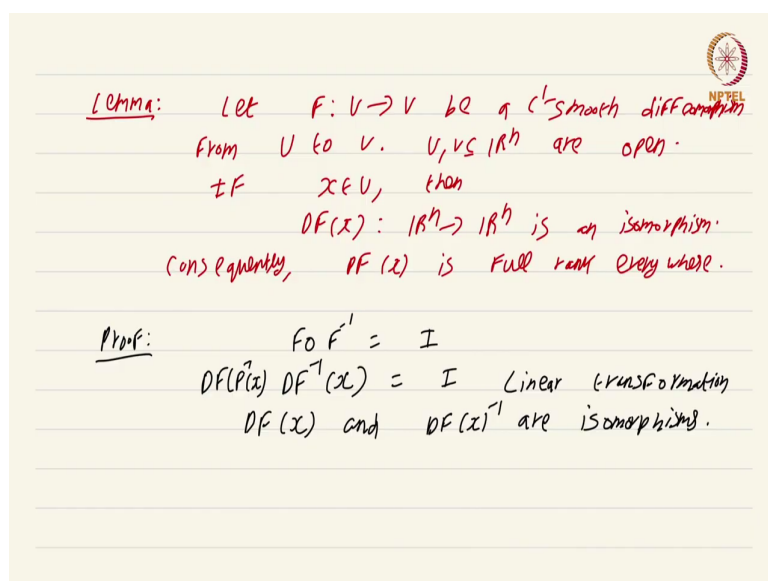 NPTEL
Lemma: Let F: U → V be a C¹-smooth diffeomorphism
From U to V. U, V ⊆ ℝⁿ are open.
If x ∈ U, then
DF(x): ℝⁿ → ℝⁿ is an isomorphism.
Consequently, DF(x) is full rank everywhere.
Proof: F∘F⁻¹ = I
DF(F⁻¹(x) DF⁻¹(x) = I Linear transformation
DF(x) and DF(x)⁻¹ are isomorphisms.